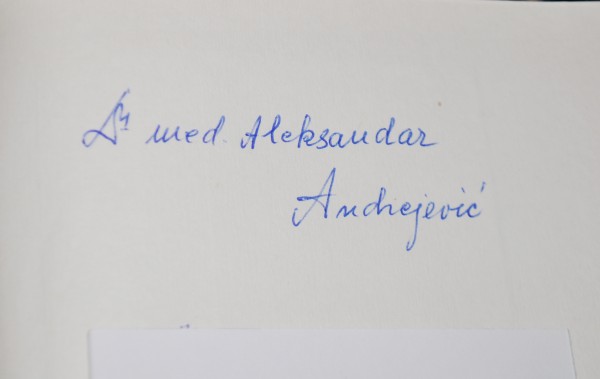 Dr med. Aleksandar
Andrejević